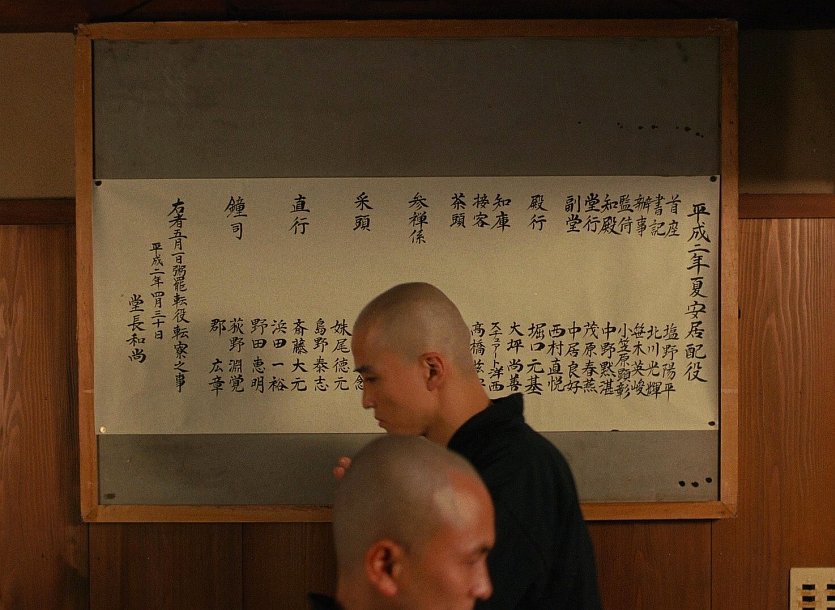 平成二年夏安居配役
首座 塩野陽平
書記 北川光輝
辦事 笹木英峻
監侍 小笠原顕彰
知殿 中野黙湛
堂行 茂原春燕
副堂 中居良好
西村直悦
殿行 堀口元基
知庫 大坪尚善
接客
茶頭 高橋
参禅係
采頭 妹尾徳元
島野泰志
直行 斎藤大元
浜田一裕
野田恵明
鐘司 荻野淵覚
郡広章
右者五月一日粥罷転役転寮之事
平成二年四月三十日
堂長和尚